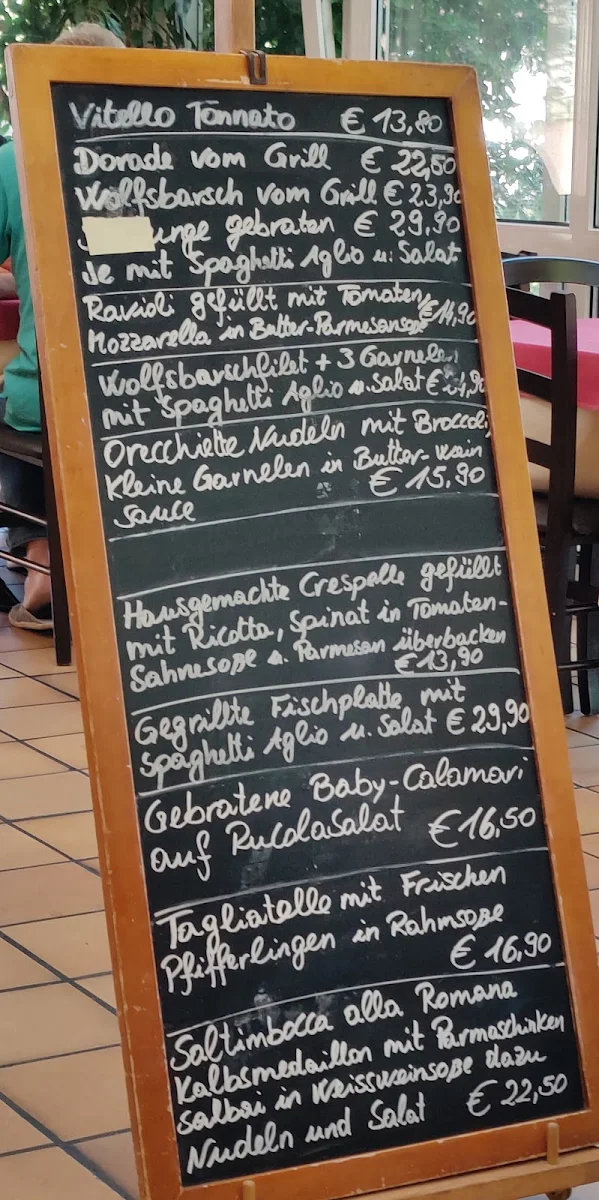 Vitello Tonnato € 13,80
Dorade vom Grill € 22,50
Wolfsbarsch vom Grill € 23,90
gebraten € 29,90
Je mit Spaghetti Aglio u. Salat
Ravioli gefüllt mit Tomaten,
Mozzarella in Butter-Parmesansoße €14,90
Wolfsbarschfilet + 3 Garnelen
mit Spaghetti Aglio u. Salat
Orecchiette Nudeln mit Broccoli,
Kleine Garnelen in Butter-wein
Sauce € 15,90
Hausgemachte Crespelle gefüllt
mit Ricotta, Spinat in Tomaten-
Sahnesoße u. Parmesan überbacken
€ 13,90
Gegrillte Fischplatte mit
Spaghetti Aglio u. Salat € 29,90
Gebratene Baby-Calamari
auf Rucolasalat €16,50
Tagliatelle mit Frischen
Pfifferlingen in Rahmsoße
€ 16,90
Saltimbocca alla Romana
Kalbsmedaillon mit Parmaschinken
Salbai in Weissweinsoße dazu
Nudeln und Salat € 22,50